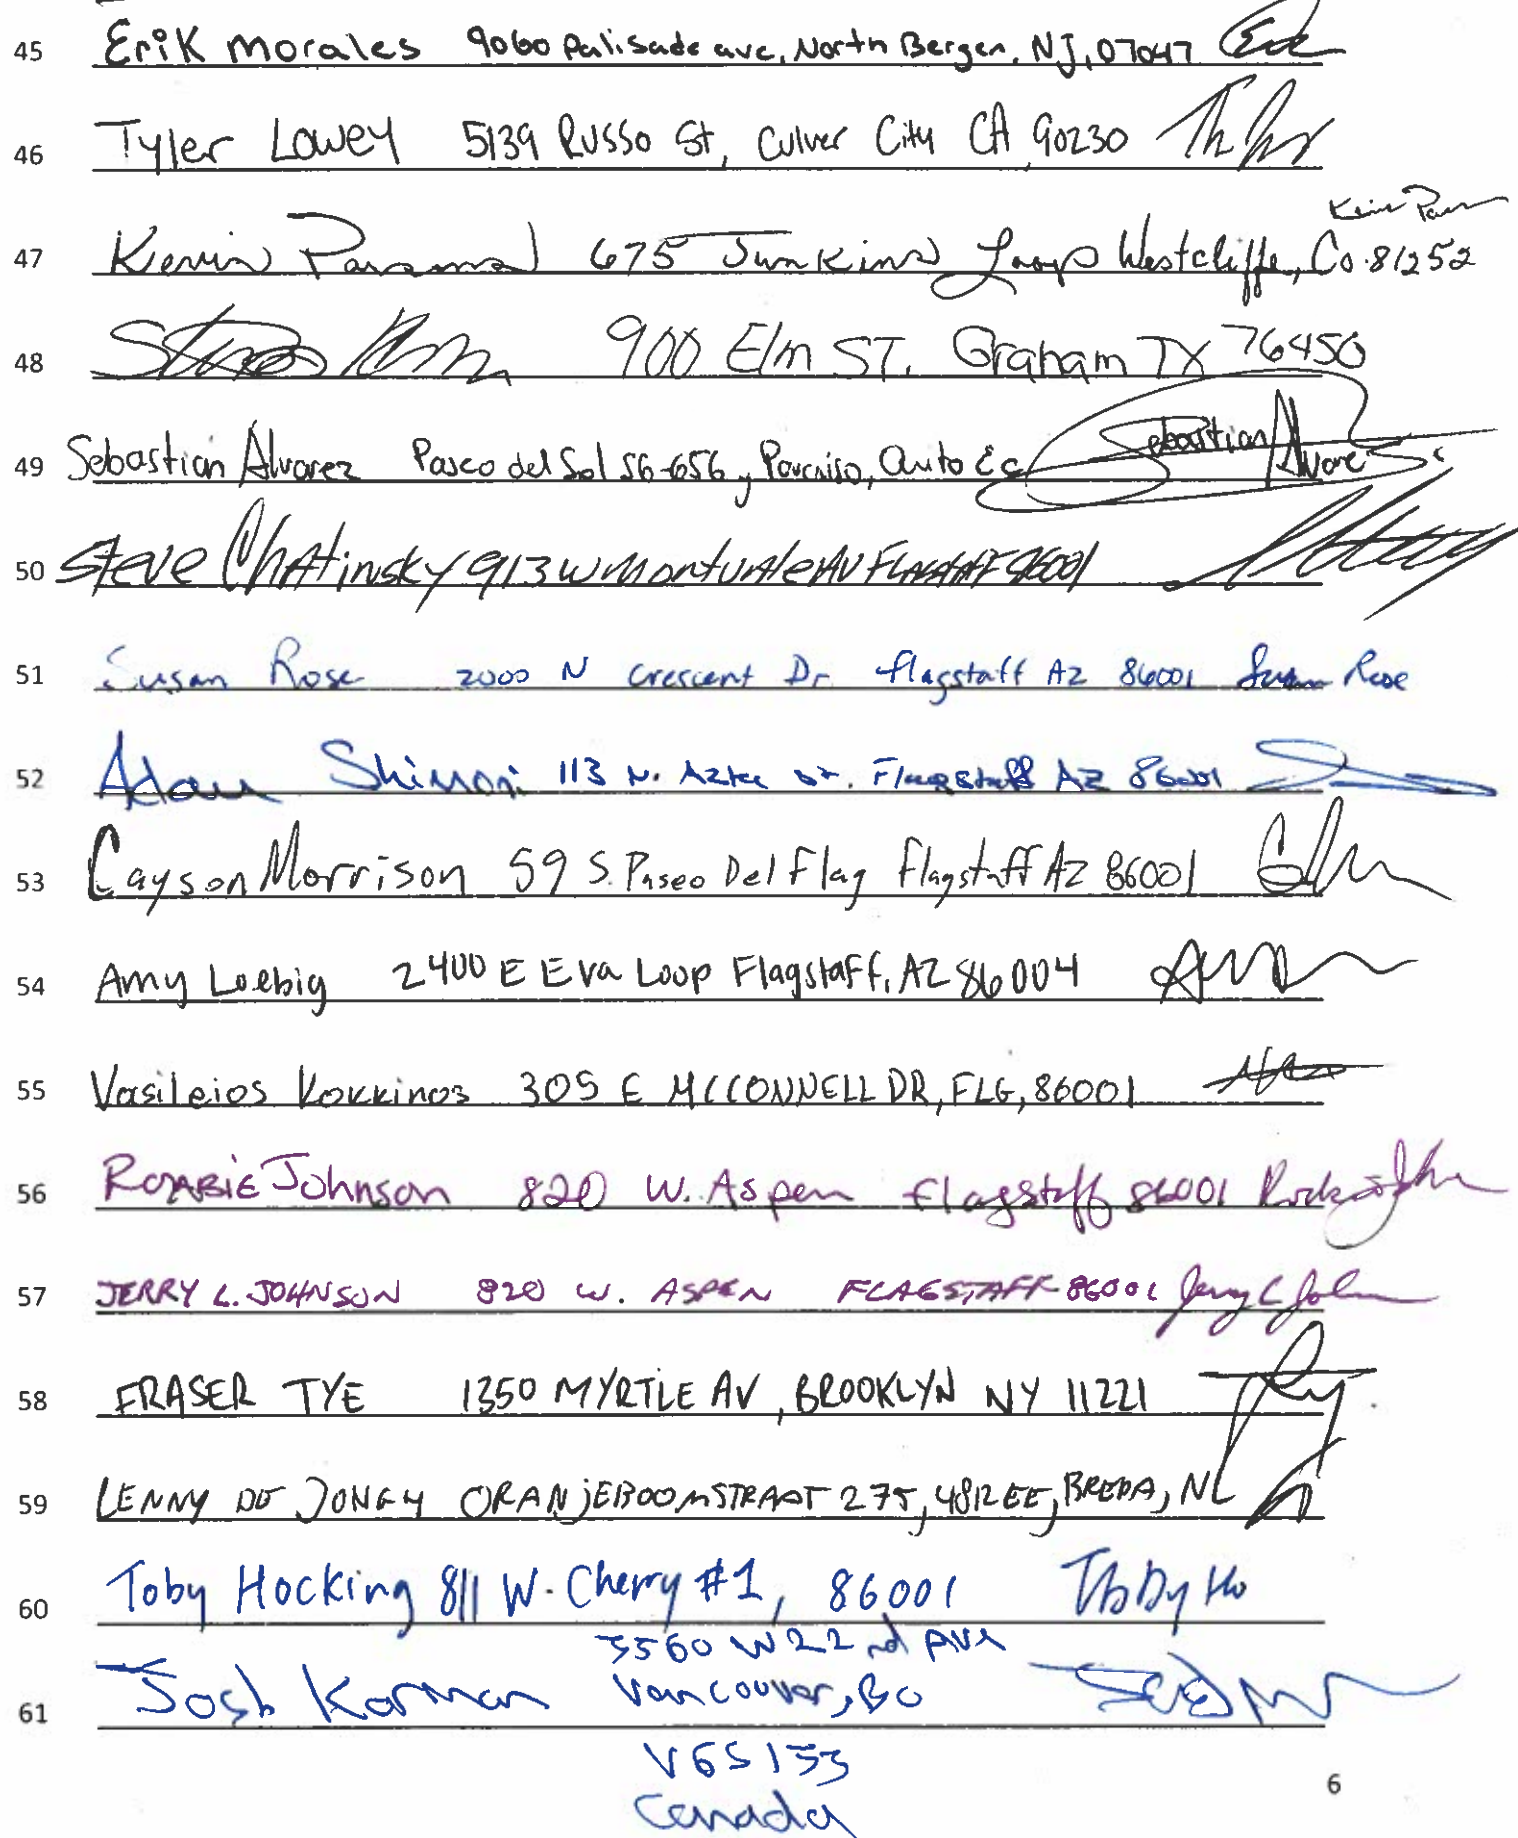 45 Erik Morales 9060 Palisade ave, North Bergen, NJ, 07047
46 Tyler Lowey 5139 Russo St, Culver City CA 90230
47 Kevin 675 Junkins Loop Westcliffe, Co. 81252
48 900 Elm ST. Graham TX 76450
49 Sebastian Alvarez Paseo del Sol S6-656 y Paraiso, Quito Ec Sebastian Alvarez
50 Steve Chatinsky 913 W AV FLAGSTAFF 86001
51 Susan Rose 2000 N Crescent Dr flagstaff AZ 86001 Susan Rose
52 Adam Shimoni 113 N. Aztec st. Flagstaff AZ 86001
53 Cayson Morrison 59 S. Paseo Del Flag Flagstaff AZ 86001
54 Amy Loebig 2400 E Eva Loop Flagstaff, AZ 86004
55 Vasileios Kokkinos 305 E MCCONNELL DR, FLG, 86001
56 Johnson 820 W. Aspen Flagstaff 86001
57 JERRY L. JOHNSON 820 W. ASPEN FLAGSTAFF 86001 Jerry L John
58 FRASER TYE 1350 MYRTLE AV, BROOKLYN NY 11221
59 LENNY DE JONGH ORANJEBOOMSTRAAT 275, 4812EE, BREDA, NL
60 Toby Hocking 811 W. Cherry #1, 86001 Toby Ho
3560 W 22nd Ave
61 Josh Korman Vancouver, BC
V6S 1J3
Canada
6